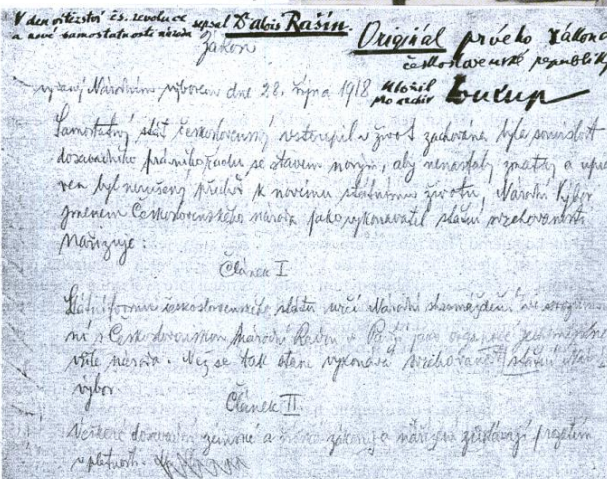 V den vítězství čs. revoluce
a nové samostatnosti národa sepsal Dr Alois Rašín.
Originál prvého zákona
československé republiky
uložil
pro archiv Soukup
Zákon
vydaný Národním výborem dne 28. října 1918
Samostatný stát československý vstoupil v život zachována byla souvislost
dosavadního právního řádu se stavem novým, aby nenastaly zmatky a upra
ven byl nerušený přechod k novému státnímu životu, Národní Výbor
jménem Československého národa jako vykonavatel státní svrchovanosti
nařizuje:
Článek I
Státní formu československého státu určí Národní shromáždění
ní s Československou Národní Radou v Paříži jako orgánové jednomyslné
vůle národa. Než se tak stane vykonává svrchovanost státní Nár.
výbor
Článek II.
Veškeré dosavadní zemské a říšské zákony a nařízení zůstávají prozatím
v platnosti.